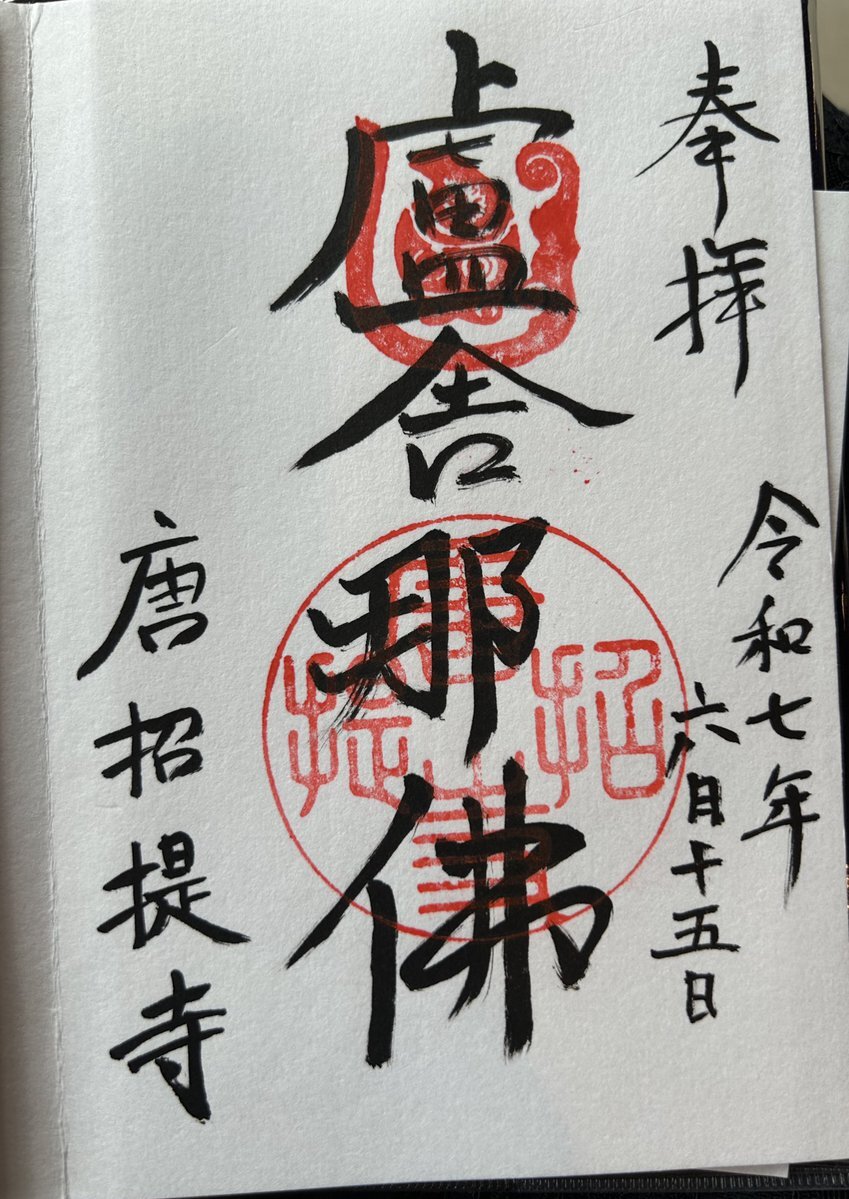 奉拝
令和七年
六月十五日
盧舎那佛
唐招提寺